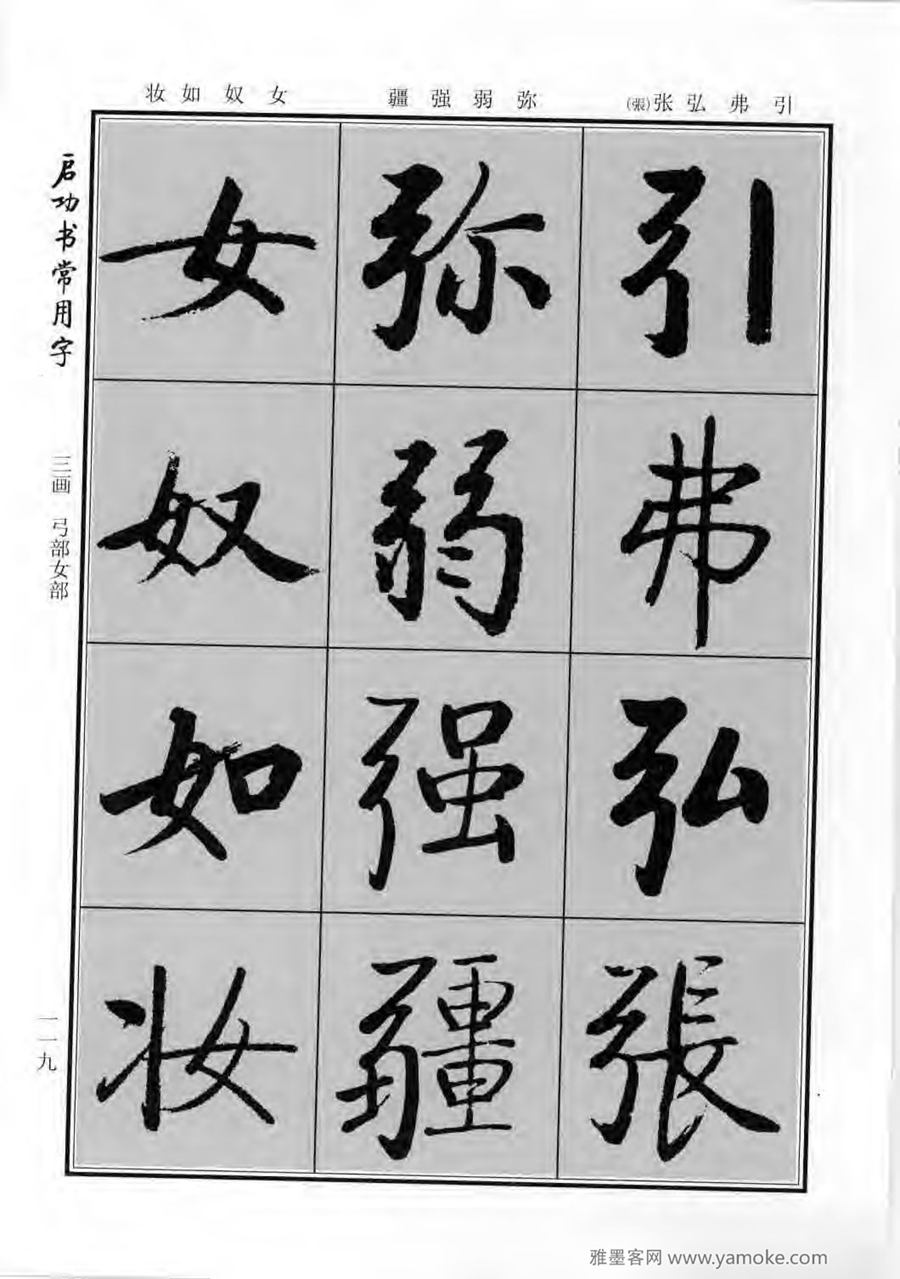 引弗弘张(張)
弥弱强疆
女奴如妆
引弗弘張
弥弱强疆
女奴如妆
启功书常用字
三画 弓部女部
一一九
雅墨客网 www.yamoke.com